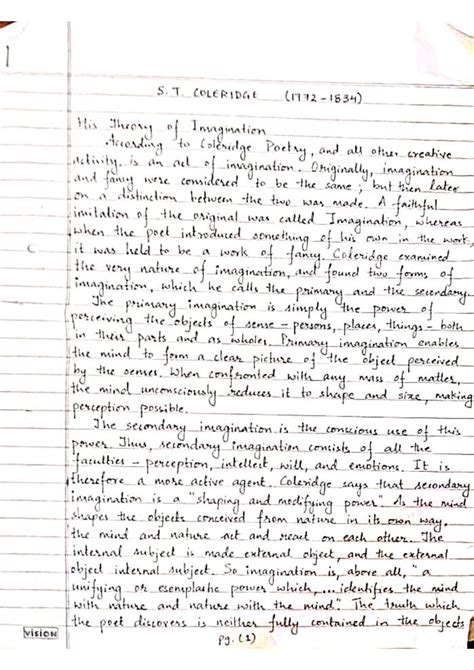 S. T. COLERIDGE (1772-1834)
His Theory of Imagination
According to Coleridge Poetry, and all other creative
activity is an act of imagination. Originally, imagination
and fancy were considered to be the same; but then later
on a distinction between the two was made. A faithful
imitation of the original was called Imagination, whereas
when the poet introduced something of his own in the work,
it was held to be a work of fancy. Coleridge examined
the very nature of imagination, and found two forms of
imagination, which he calls the primary and the secondary.
The primary imagination is simply the power of
perceiving the objects of sense - persons, places, things - both
in their parts and as wholes. Primary imagination enables
the mind to form a clear picture of the object perceived
by the senses. When confronted with any mass of matter,
the mind unconsciously reduces it to shape and size, making
perception possible.
The secondary imagination is the conscious use of this
power. Thus, secondary imagination consists of all the
faculties - perception, intellect, will, and emotions. It is
therefore a more active agent. Coleridge says that secondary
imagination is a "shaping and modifying power". As the mind
shapes the objects conceived from nature in its own way,
the mind and nature act and react on each other. The
internal subject is made external object, and the external
object internal subject. So imagination is, above all, "a
unifying or esemplastic power which, ... identifies the mind
with nature and nature with the mind." The truth which
the poet discovers is neither fully contained in the objects
VISION
Pg. (1)